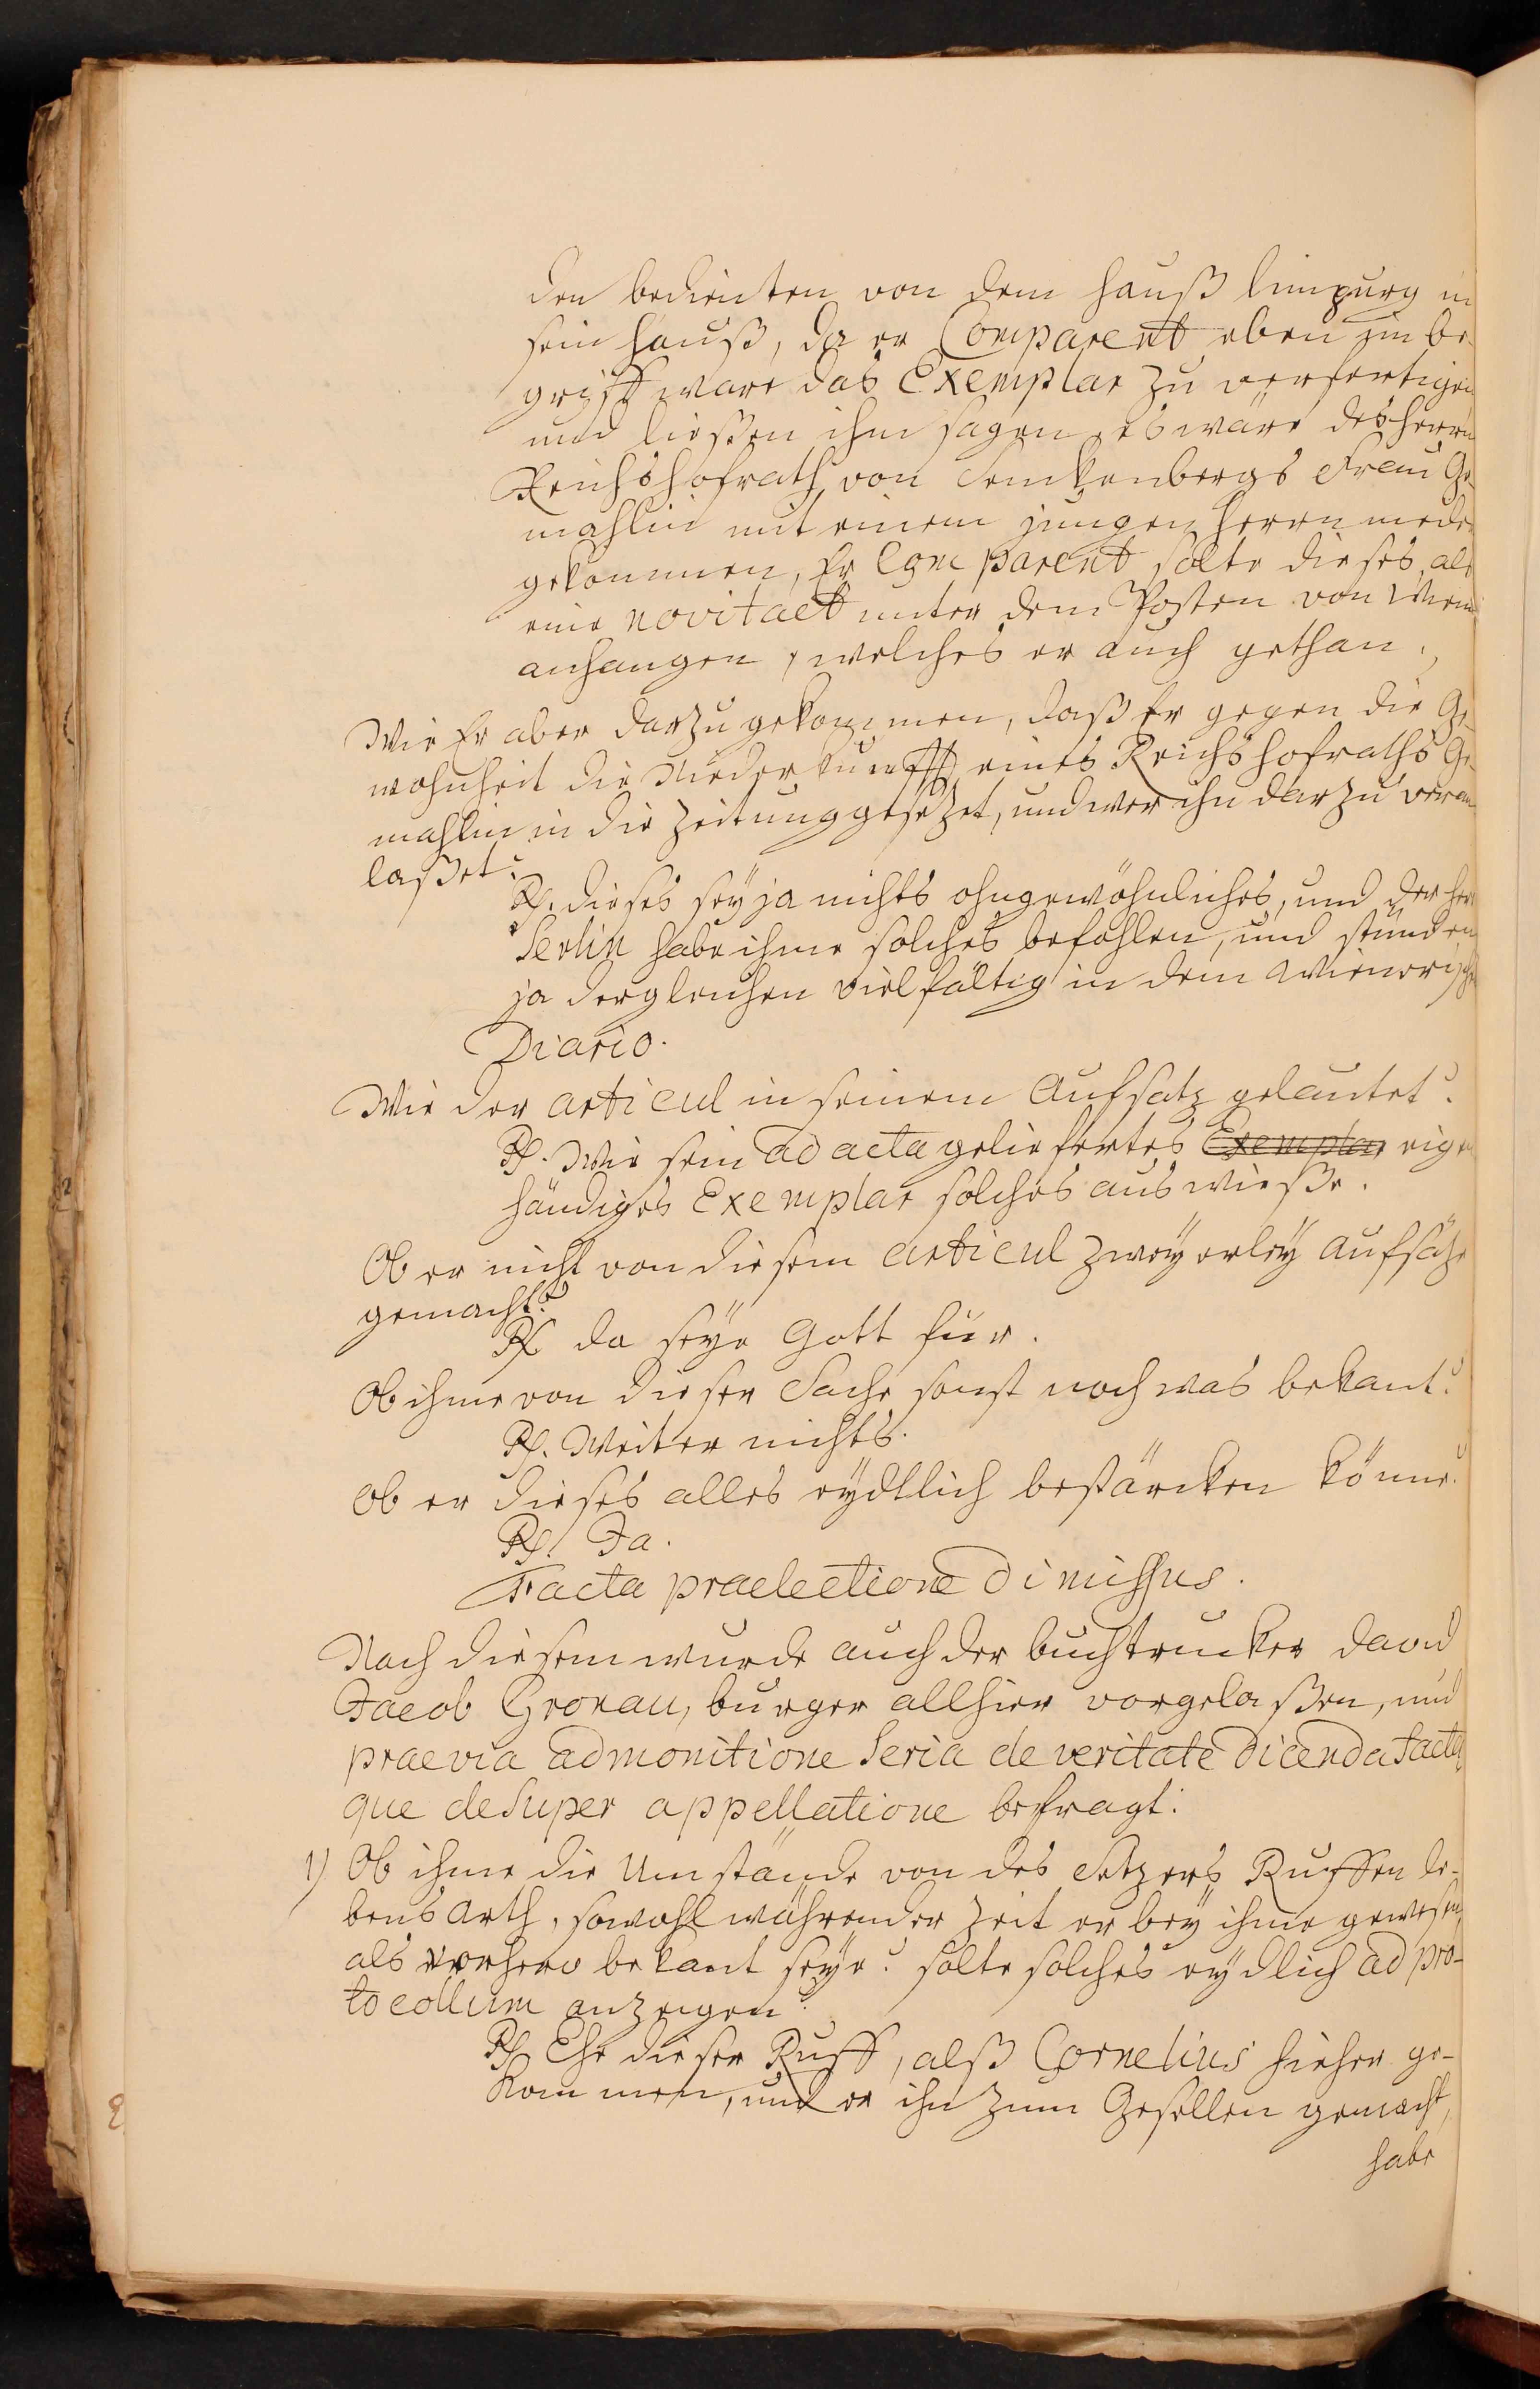 den bedienten von dem hauß limpurg in
sein hauß, da er Comparent eben im be-
griff ware das Exemplar zu verfertigen
und ließen ihm sagen, es wäre des herrn
Reichshofrath von Senckenbergs Frau Ge-
mahlin mit einem jungen herrn nieder
gekommen, Er Comparent solte dieses als
eine novitaet unter dem Posten von Wien
anhangen, welches er auch gethan.
Wie Er aber darzu gekommen, daß Er gegen die Ge-
wohnheit die Niederkunfft eines Reichshofraths Ge-
mahlin in die Zeitung gesetzet, und wer ihn darzu veran-
laßet?
Rs. dieses sey ja nichts ohngewöhnliches, und der herr
Serlin habe ihme solches befohlen, und stünden
ja dergleichen vielfältig in dem Wienerischen
Diario.
Wie der articul in seinem Aufsatz gelautet?
Rs. Wie sein ad acta geliefertes Exemplar eigen
händiges Exemplar solches auswieße.
Ob er nicht von diesem articul zweyerley Aufsätze
gemacht?
Rs. da seye Gott für.
Ob ihme von dieser Sache sonst noch was bekant?
Rs. Weiter nichts.
Ob er dieses alles eydtlich bestärcken könne?
Rs. Ja.
Facta praelectione dimissus.
Nach diesem wurde auch der buchtrucker David
Jacob Cronau, burger allhier vorgelaßen, und
praevia admonitione seria de veritate dicenda facta
que desuper appellatione befragt:
1) Ob ihme die Umstände von des Setzers Ruffen le-
bens Arth, sowohl während der Zeit er bey ihme gewesen,
als vorhero bekant seye? solte solches eydlich ad pro-
tocollum anzeigen?
Rs. Ehe dieser Ruff, alß Cornelius hieher ge-
kommen, und er ihn zum Gesellen gemacht,
habe